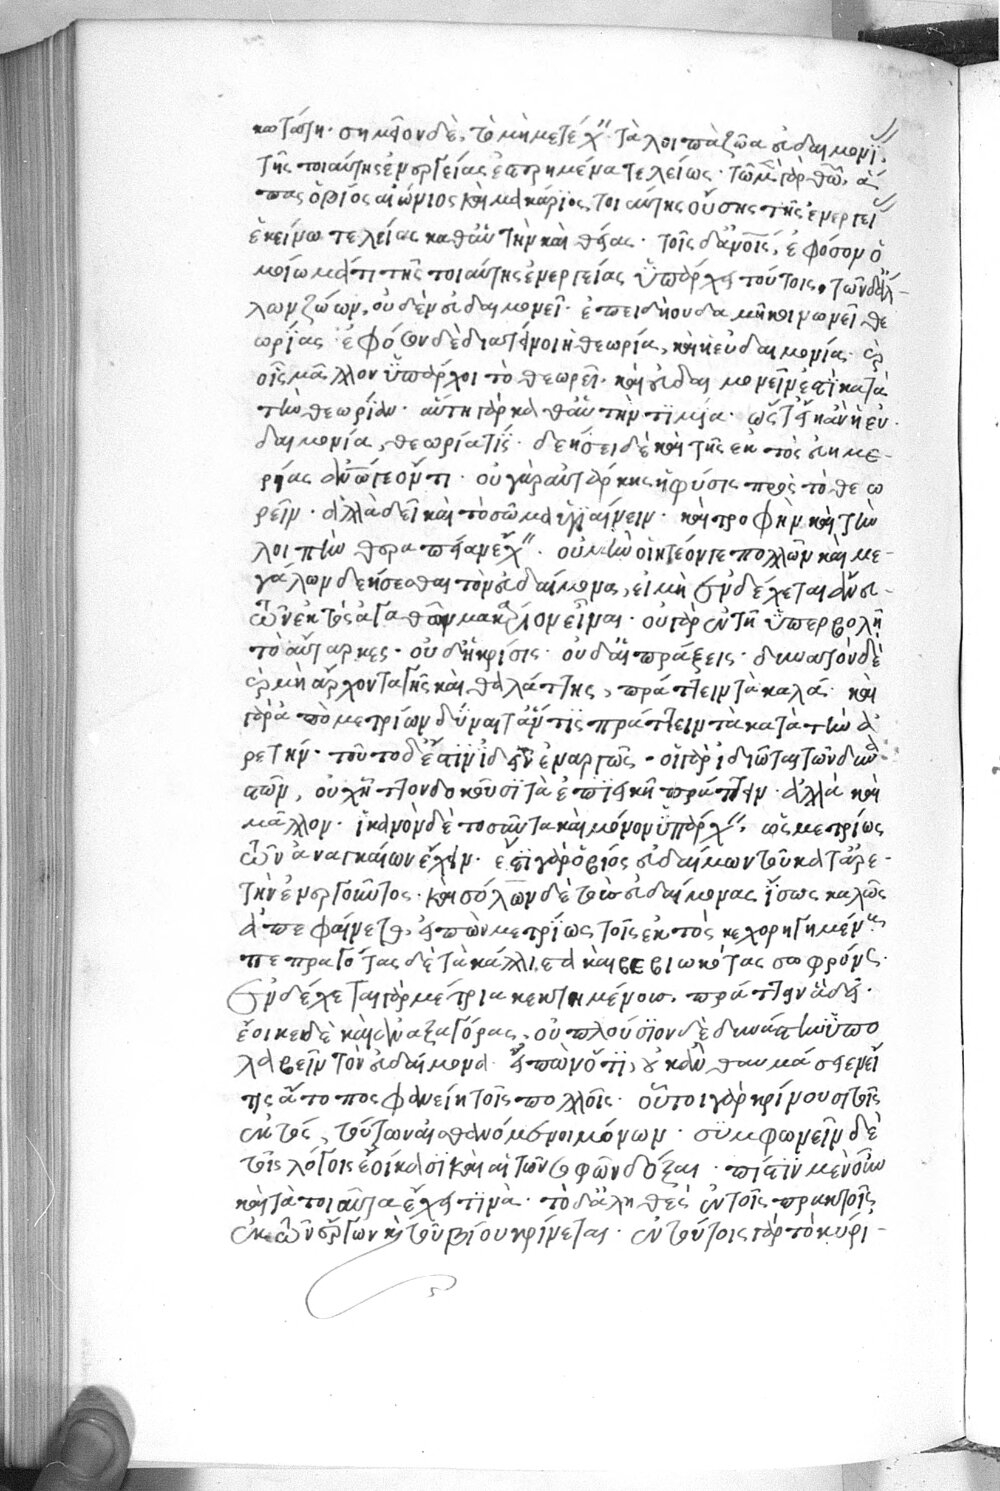 κωτάτη· σημεῖον δὲ, τὸ μὴ μετέχειν τὰ λοιπὰ ζῶα εὐδαιμονίας
τῆς τοιαύτης ἐνεργείας ἐστερημένα τελείως· τῶν μὲν γὰρ θεῶν, ἅ
πας ὁ βίος αἰώνιος καὶ μακάριος, τοιαύτης οὔσης τῆς ἐνεργείας
ἐκείνων τελείας καθ' αὑτὴν καὶ θείας· τοῖς δ' ἀνθρώποις, ἐφ' ὅσον ὁ
μοίωμά τι τῆς τοιαύτης ἐνεργείας ὑπάρχει τούτοις, τῶν δ' ἄλ-
λων ζώων, οὐδὲν εὐδαιμονεῖ· ἐπειδὴ οὐδαμῆ κοινωνεῖ θε
ωρίας· ἐφ' ὅσον δὲ διατείνοι ἡ θεωρία, καὶ ἡ εὐδαιμονία· καὶ
οἷς μᾶλλον ὑπάρχοι τὸ θεωρεῖν· καὶ εὐδαιμονεῖν ἐστὶ κατὰ
τὴν θεωρίαν· αὕτη γὰρ καθ' αὑτὴν τιμία· ὥστ' εἴη ἂν ἡ εὐ
δαιμονία, θεωρία τίς· δεήσει δὲ καὶ τῆς ἐκτὸς εὐημε-
ρίας ἀνθρώπῳ γε ὄντι· οὐ γὰρ αὐτάρκης ἡ φύσις πρὸς τὸ θεω
ρεῖν· ἀλλὰ δεῖ καὶ τὸ σῶμα ὑγιαίνειν· καὶ τροφὴν καὶ τὴν
λοιπὴν θεραπείαν ἔχειν· οὐ μὴν οἰητέον γε πολλῶν καὶ με-
γάλων δεήσεσθαι τὸν εὐδαίμονα, εἰ μὴ ἐνδέχεται ἄνευ
τῶν ἐκτὸς ἀγαθῶν μακάριον εἶναι· οὐ γὰρ ἐν τῇ ὑπερβολῇ
τὸ αὔταρκες· οὐδ' ἡ κρίσις· οὐδ' ἡ πράξεις· δυνατὸν δὲ
καὶ μὴ ἄρχοντα γῆς καὶ θαλάττης, πράττειν τὰ καλά· καὶ
γὰρ ἀπὸ μετρίων δύναιτ' ἄν τις πράττειν τὰ κατὰ τὴν ἀ
ρετήν· τοῦτο δ' ἔστιν ἰδεῖν ἐναργῶς· οἱ γὰρ ἰδιῶται τῶν δυνα
στῶν, οὐχ ἧττον δοκοῦσι τὰ ἐπιεικῆ πράττειν· ἀλλὰ καὶ
μᾶλλον· ἱκανὸν δὲ τοσαῦτα καὶ μόνον ὑπάρχειν, ὡς μετρίως
τῶν ἀναγκαίων ἔχειν· ἔσται γὰρ ὁ βίος εὐδαίμων τοῦ κατ' ἀρε-
τὴν ἐνεργοῦντος· καὶ σόλων δὲ τοὺς εὐδαίμονας ἴσως καλῶς
ἀπεφαίνετο, εἰπὼν μετρίως τοῖς ἐκτὸς κεχορηγημένους
πεπραγότας δὲ τὰ κάλλιστα καὶ βεβιωκότας σωφρόνως·
ἐνδέχεται γὰρ μέτρια κεκτημένους, πράττειν ἃ δεῖ·
ἔοικε δὲ καὶ ἀναξαγόρας, οὐ πλούσιον δὲ δυνάστην ὑπο
λαβεῖν τὸν εὐδαίμονα· εἰπὼν ὅτι, οὐκ ἂν θαυμάσειεν εἴ
τις ἄτοπος φανείη τοῖς πολλοῖς· οὗτοι γὰρ κρίνουσι τοῖς
ἐκτός, τούτων αἰσθανόμενοι μόνων· συμφωνεῖν δὲ
τοῖς λόγοις ἐοίκασι καὶ αἱ τῶν σοφῶν δόξαι· πίστιν μὲν οὖν
καὶ τὰ τοιαῦτα ἔχει τινὰ· τὸ δ' ἀληθὲς ἐν τοῖς πρακτοῖς
ἐκ τῶν ἔργων καὶ τοῦ βίου κρίνεται· ἐν τούτοις γὰρ τὸ κύρι-